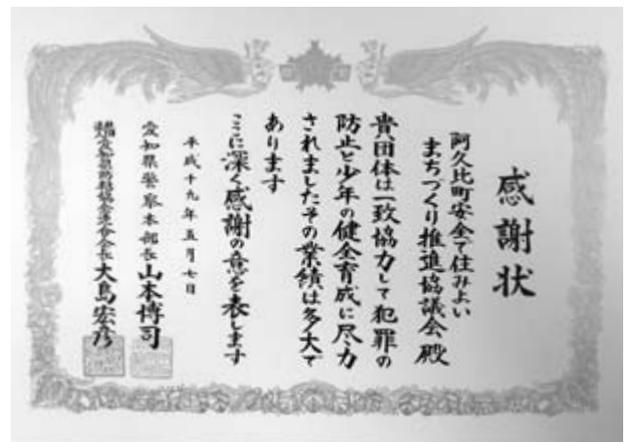 感謝状
阿久比町安全で住みよい
まちづくり推進協議会 殿
貴団体は一致協力して犯罪の
防止と少年の健全育成に尽力
されましたその業績は多大で
あります
ここに深く感謝の意を表します
平成十九年五月七日
愛知県警察本部長 山本博司
愛知県防犯協会連合会長 大島宏彦